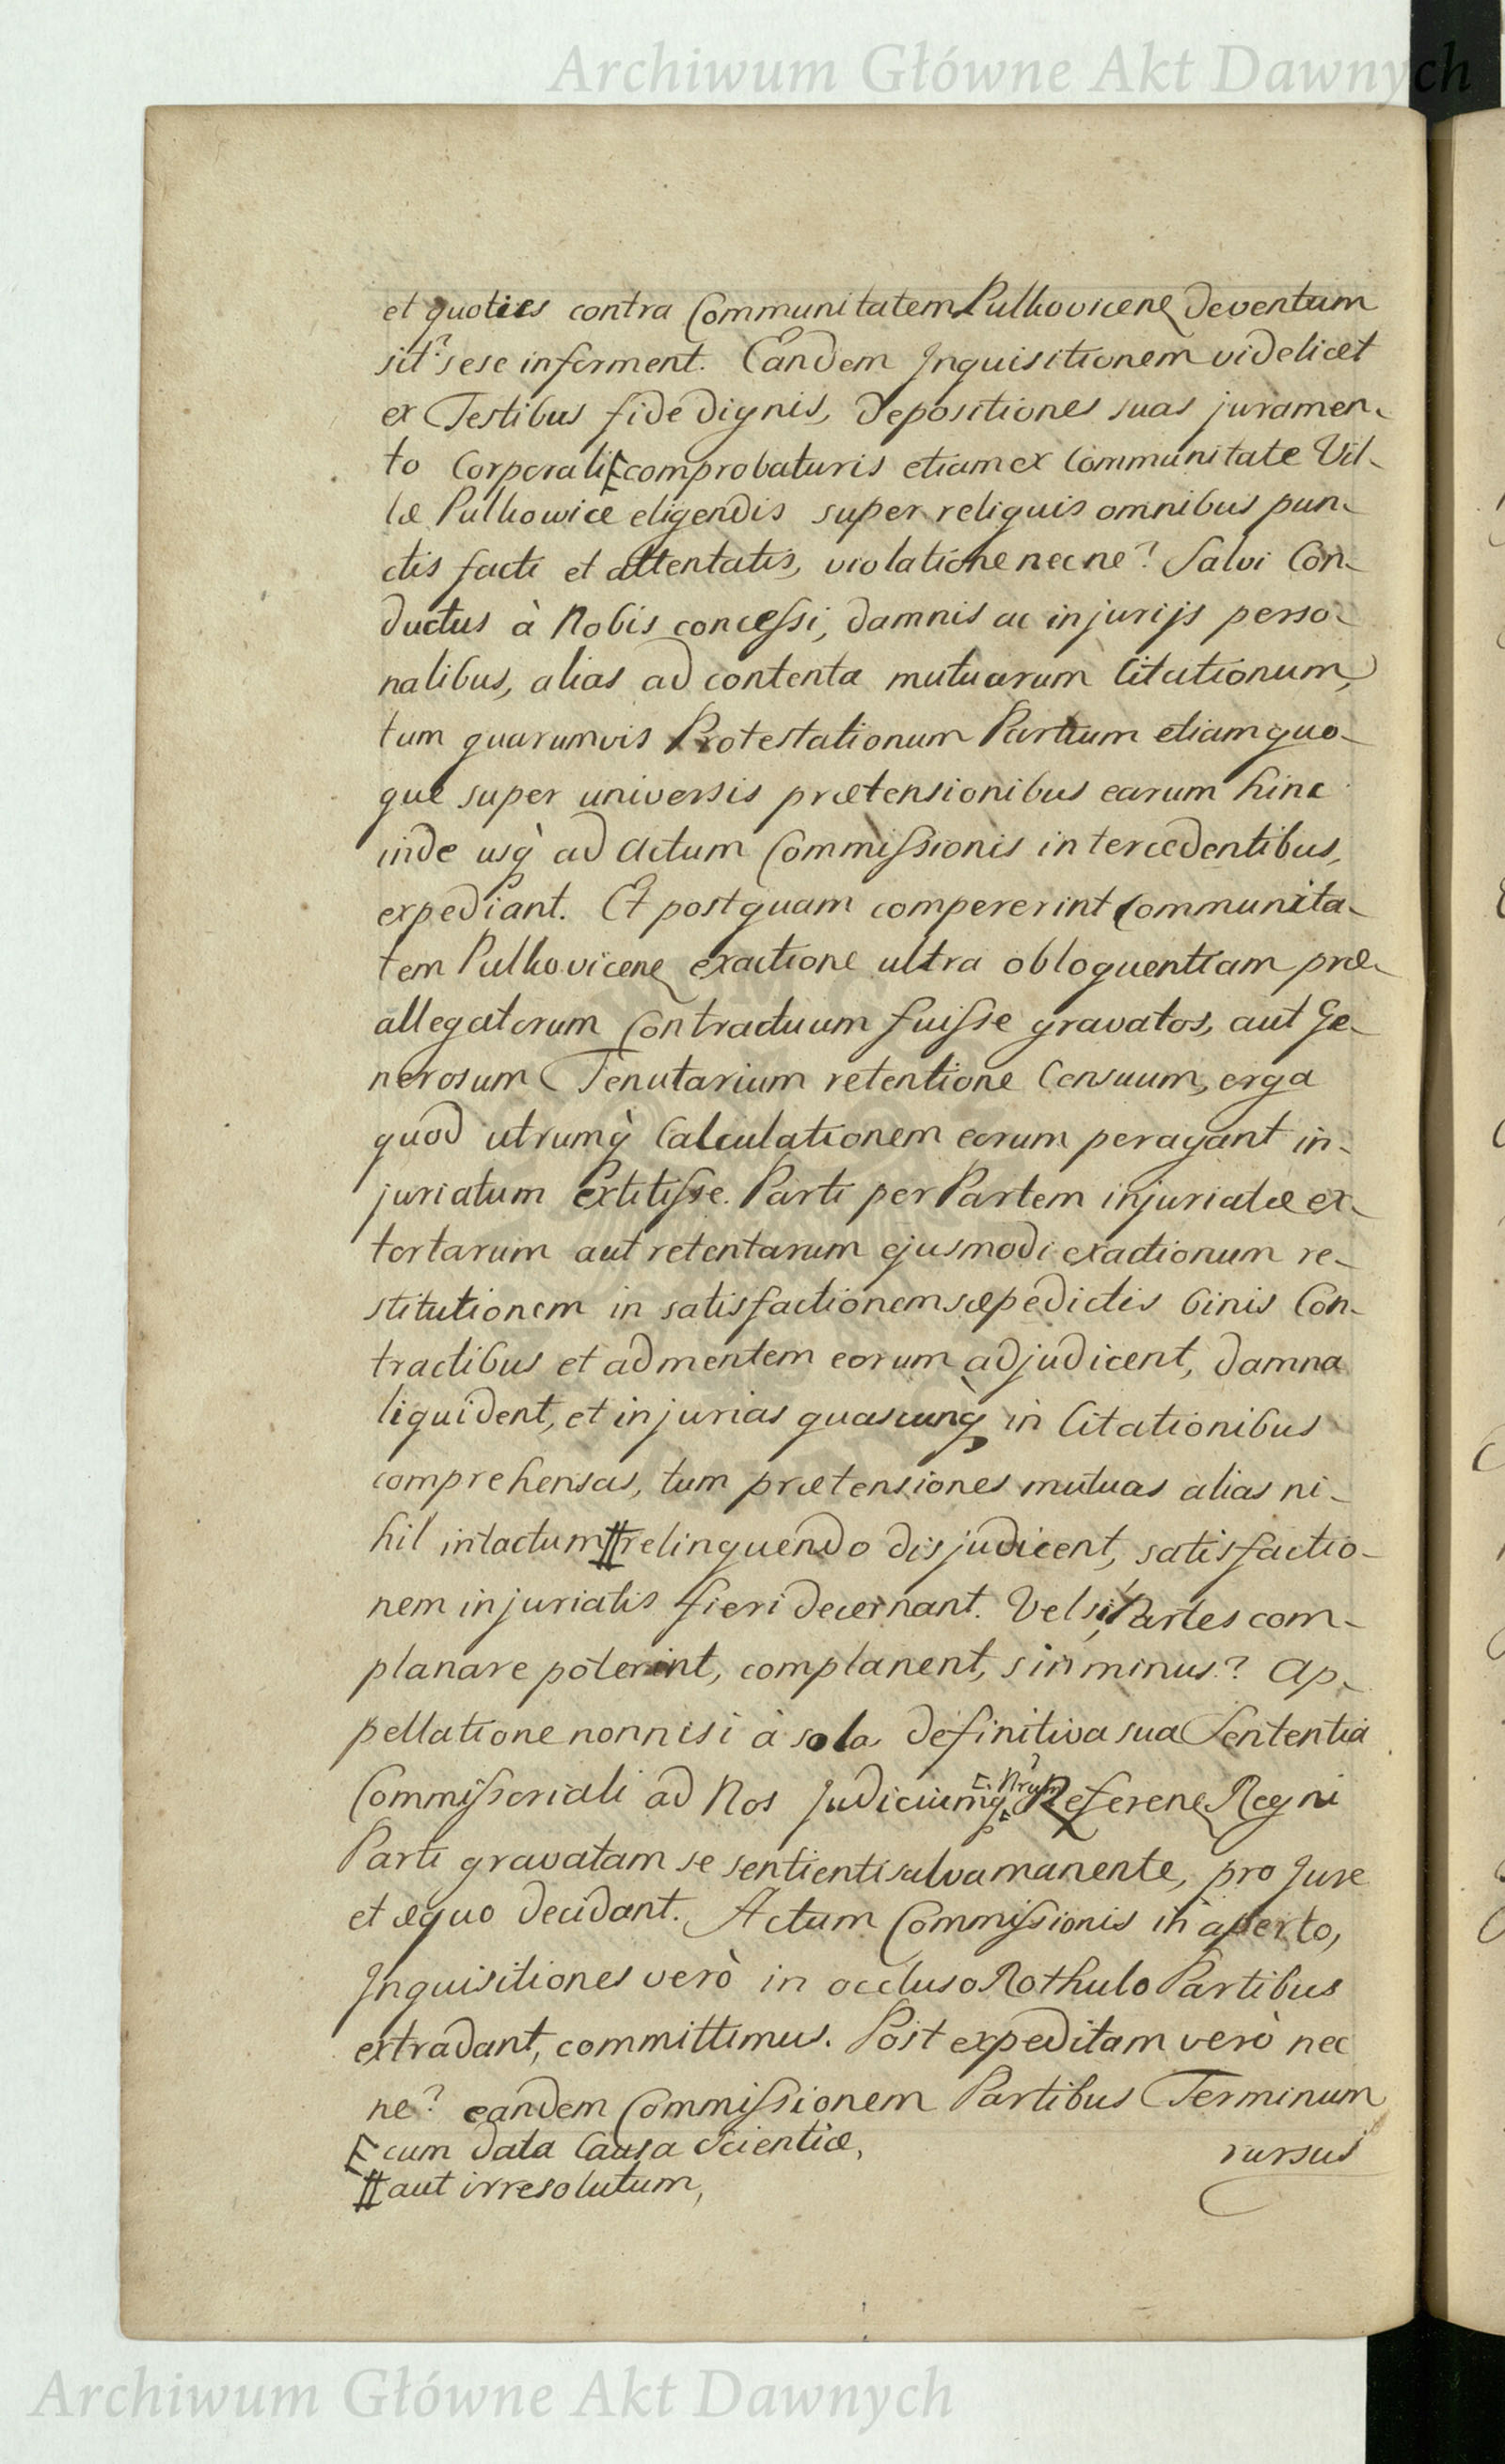 Archiwum Główne Akt Dawnych
et quoties contra Communitatem Pulkovicen deventum
sit? sese informent. Eandem Inquisitionem videlicet
ex Testibus fide dignis, depositiones suas juramen-
to Corporali comprobaturis etiam ex Communitate Vil-
læ Pulkowice eligendis super reliquis omnibus pun-
ctis facti et attentatis, violatione necne? Salvi Con-
ductus à Nobis concessi, damnis ac injurijs perso-
nalibus, alias ad contenta mutuarum Citationum,
tum quarumvis Protestationum Partium etiam quo-
que super universis prætensionibus earum hinc
inde usq̀ ad Actum Commissionis intercedentibus,
expediant. Et postquam compererint Communita-
tem Pulkovicen exactione ultra obloquentiam præ-
allegatorum Contractuum fuisse gravatos, aut Ge-
nerosum Tenutarium retentione Censuum, erga
quod utrumq̀ Calculationem eorum peragant in-
juriatum extitisse. Parti per Partem injuriatæ ex-
tortarum aut retentarum ejusmodi exactionum re-
stitutionem in satisfactionem sæpedictis binis Con-
tractibus et ad mentem eorum adjudicent, damna
liquident, et injurias quascunq̀ in Citationibus
comprehensas, tum prætensiones mutuas alias ni-
hil intactum # relinquendo disjudicent, satisfactio-
nem injuriatis fieri decernant. Vel si Partes com-
planare poterint, complanent, sin minus? Ap-
pellatione nonnisi à sola definitiva sua Sententia
Commissoriali ad Nos Judiciumq Nrum Referen Regni
Parti gravatam se sentienti salva manente, pro Jure
et æquo decidant. Actum Commissionis in aperto,
Inquisitiones verò in occluso Rothulo Partibus
extradant, committimus. Post expeditam verò nec
ne? eandem Commissionem Partibus Terminum
cum data Causa Scientiæ,
rursus
# aut irresolutum,
Archiwum Główne Akt Dawnych